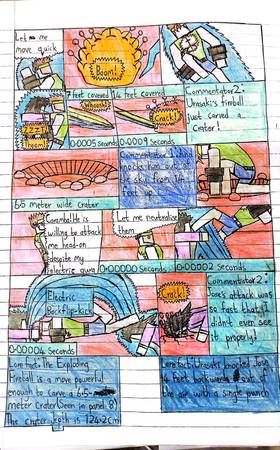 Let me
move quick
Boom!
ZZZT!
7 feet covered
14 feet covered
Whoosh!
Crack!
Commentator 2:
Urasaki's fireball
just carved a
crater!
0.0005 Seconds
0.0009 Seconds
Commentator 1: And
knocks Jax out of
the sky from 14
feet up
meter wide crater
Caramba! He
is willing to attack
me head-on
despite my
electric aura!
Let me neutralize
them
0.00002 Seconds
Electric
Backflip-kick
Crack!
Commentator 2:
attack was
so fast that I
didn't even see
it properly!
0.00004 Seconds
Lore fact: The Exploding
Fireball is a move powerful
enough to carve a 6.5-
meter crater (Seen in panel 8)
The crater depth is 124.2cm
Lore fact: Urasaki knocked
14 feet backwards out of
the air with a single punch